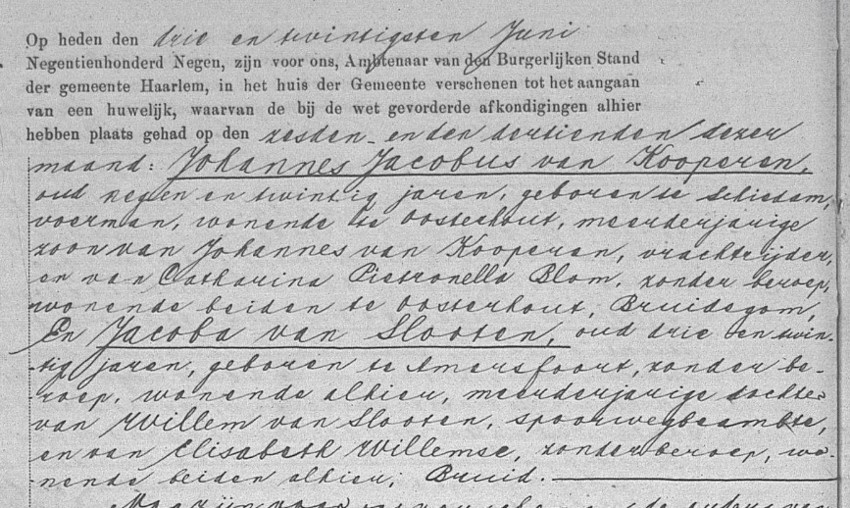 Op heden den drie en twintigsten Juni
Negentienhonderd Negen, zijn voor ons, Ambtenaar van den Burgerlijken Stand
der gemeente Haarlem, in het huis der Gemeente verschenen tot het aangaan
van een huwelijk, waarvan de bij de wet gevorderde afkondigingen alhier
hebben plaats gehad op den zesden en den dertienden dezer
maand: Johannes Jacobus van Kooperen,
oud negen en twintig jaren, geboren te Schiedam,
voerman, wonende te Oosterhout, meerderjarige
zoon van Johannes van Kooperen, vrachtrijder,
en van Catharina Pietronella Blom, zonder beroep,
wonende beiden te Oosterhout, Bruidegom,
En Jacoba van Slooten, oud drie en twin-
tig jaren, geboren te Amersfoort, zonder be-
roep, wonende alhier, meerderjarige dochter
van Willem van Slooten, spoorwegbeambte,
en van Elisabeth Willemse, zonder beroep, wo-
nende beiden alhier, Bruid.